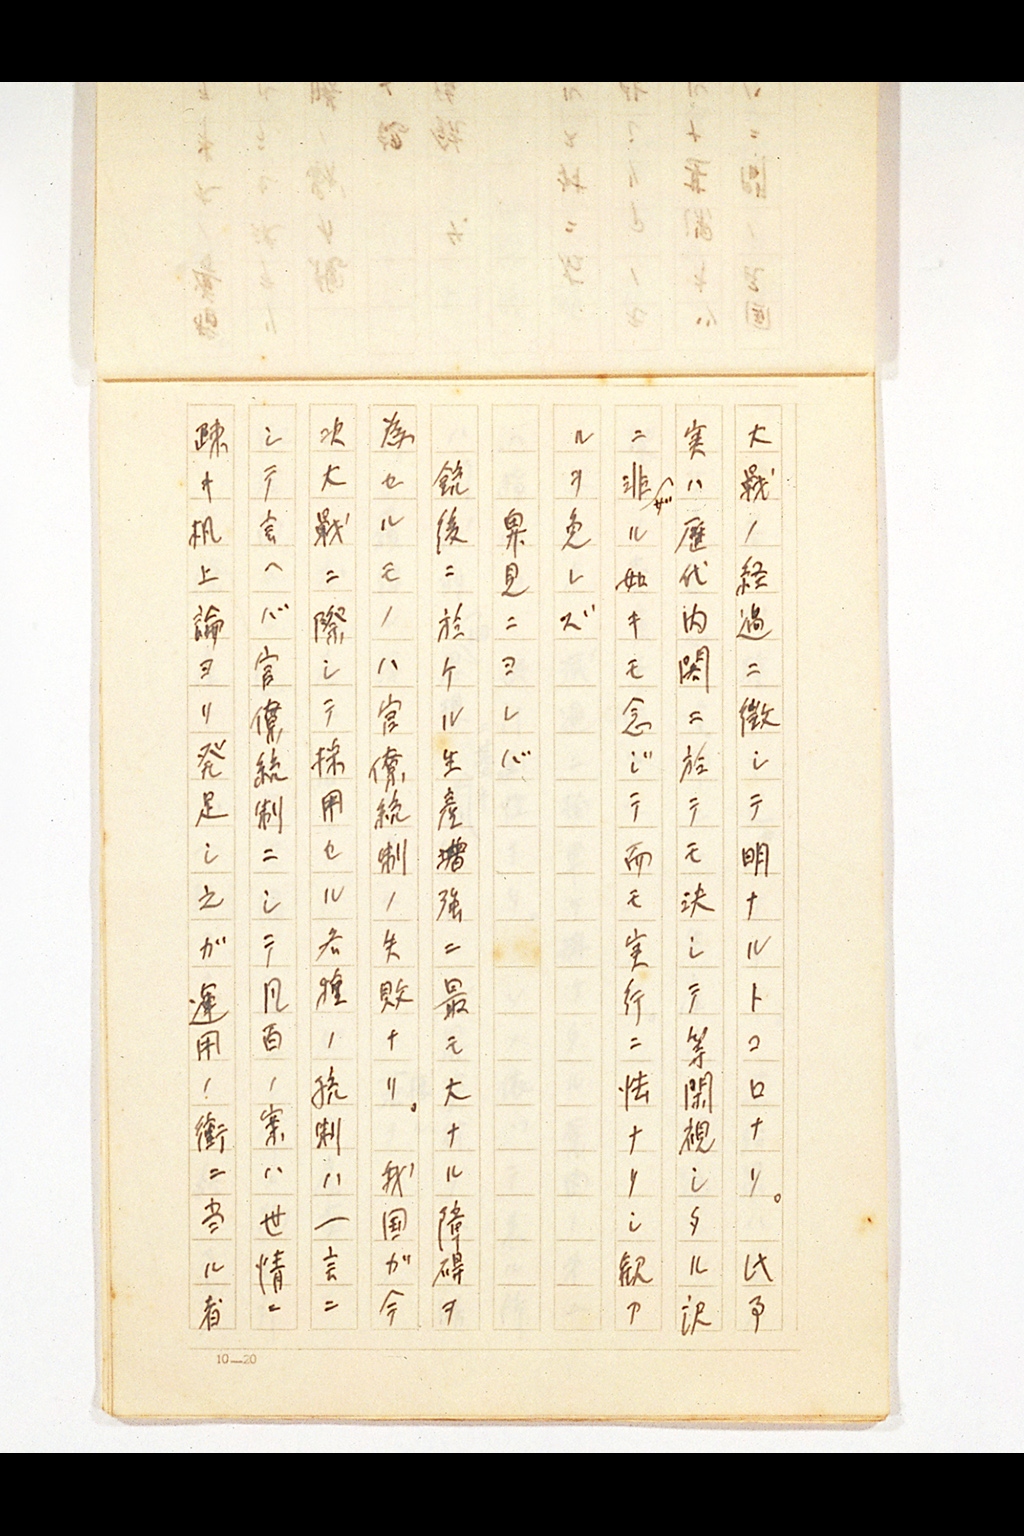 大戦ノ経過ニ徴シテ明ナルトコロナリ。此事
実ハ歴代内閣ニ於テモ決シテ等閑視シタル訳
ニ非ザル如キモ念ジテ而モ実行ニ怯ナリシ観ア
ルヲ免レズ
卑見ニヨレバ
銃後ニ於ケル生産増強ニ最モ大ナル障碍ヲ
為セルモノハ官僚統制ノ失敗ナリ。我国ガ今
次大戦ニ際シテ採用セル各種ノ統制ハ一言ニ
シテ言ヘバ官僚統制ニシテ凡百ノ案ハ世情ニ
疎キ机上論ヨリ発足シ之ガ運用ノ衝ニ当ル者
10—20